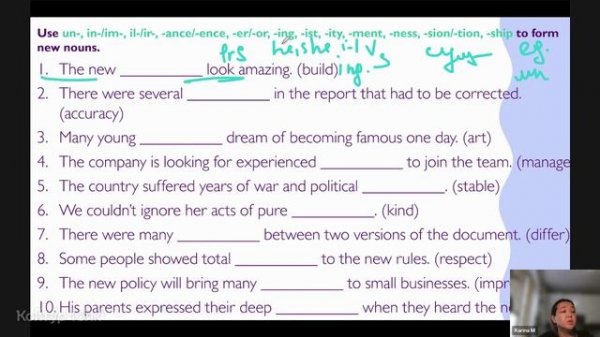 Use un-, in-/im-, il-/ir-, -ance/-ence, -er/-or, -ing, -ist, -ity, -ment, -ness, -sion/-tion, -ship to form
new nouns.
prs he, she. i-l Vs
1. The new __________ look amazing. (build) ing.
2. There were several __________ in the report that had to be corrected.
(accuracy)
3. Many young __________ dream of becoming famous one day. (art)
4. The company is looking for experienced __________ to join the team. (manage
5. The country suffered years of war and political __________. (stable)
6. We couldn't ignore her acts of pure __________. (kind)
7. There were many __________ between two versions of the document. (differ)
8. Some people showed total __________ to the new rules. (respect)
9. The new policy will bring many __________ to small businesses. (impr
10. His parents expressed their deep __________ when they heard the ne
Karina M